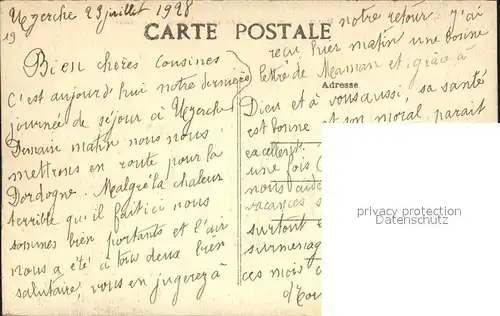 Uzerche 23 juillet 1928
19
CARTE POSTALE
Bien chères cousines
C'est aujourd'hui notre dernière
journée de séjour à Uzerche
Demain matin nous nous
mettrons en route pour la
Dordogne. Malgré la chaleur
terrible qu'il fait ici nous
sommes bien portants et l'air
nous a été à tous deux bien
salutaire, vous en jugerez à
notre retour. J'ai
reçu hier matin une bonne
lettre de Maman et, grâce à
Adresse
Dieu et à vous aussi, sa santé
est bonne et son moral paraît
excellent.
une fois
nous
vacances
surtout
surmenag
ces mois
privacy protection
Datenschutz